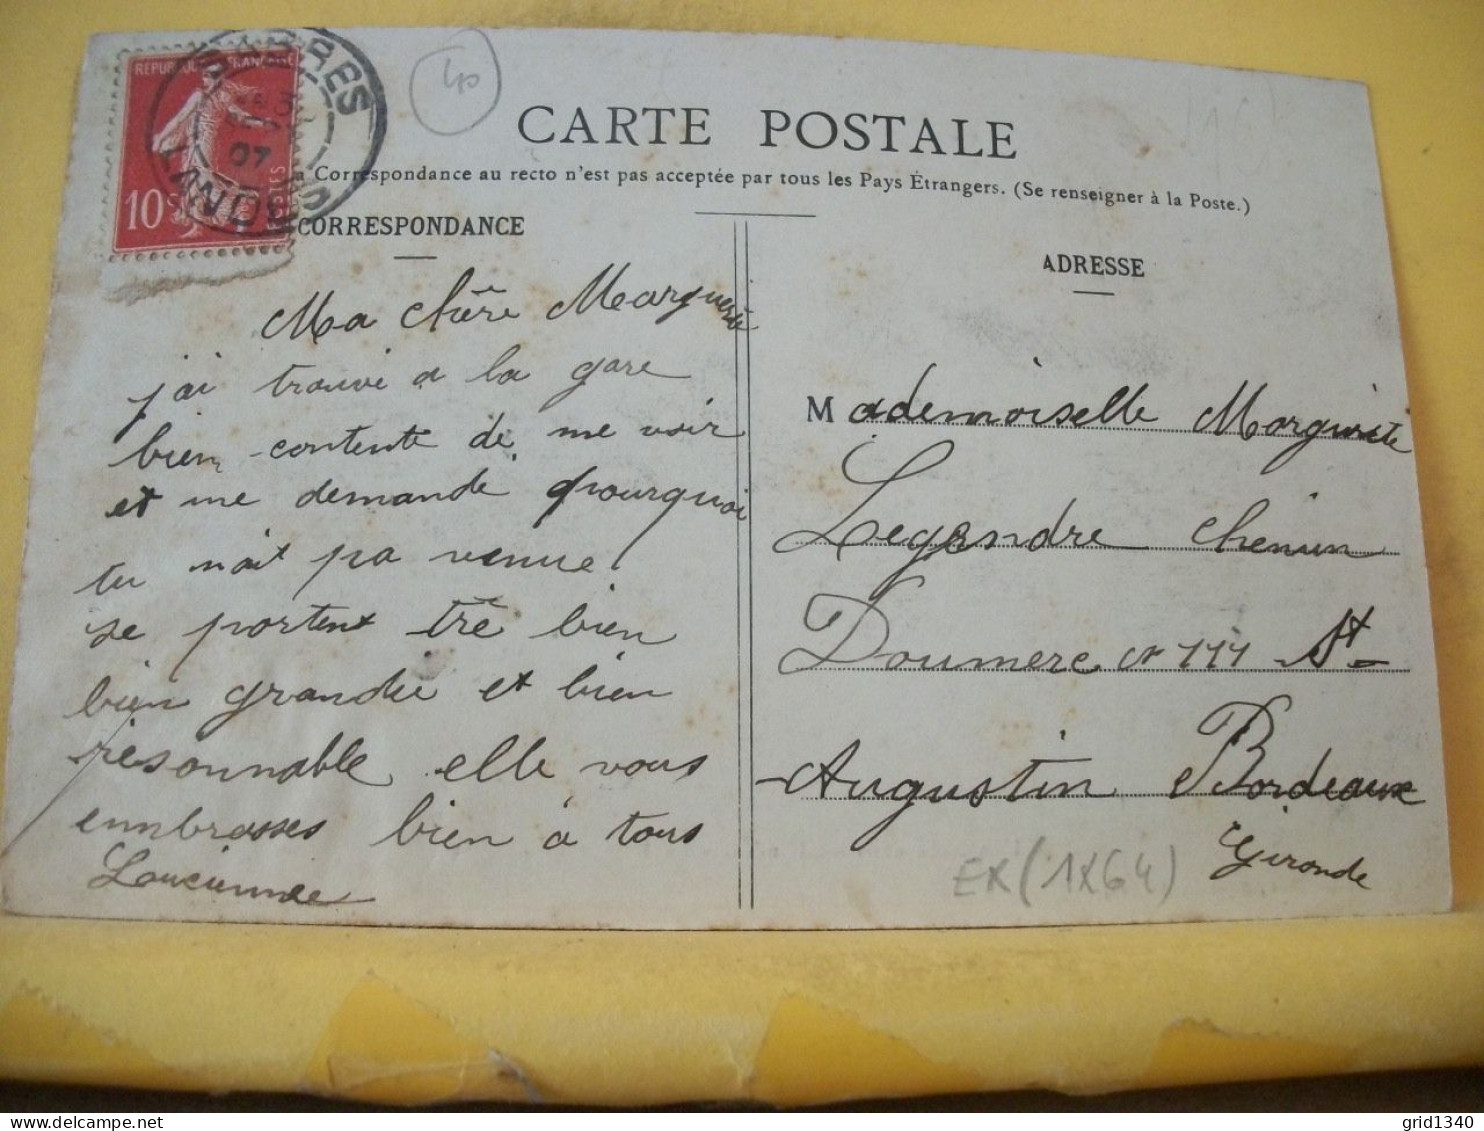 REPUBLIQUE FRANÇAISE
10
POSTES
SABRES
3
07
LANDES
40
CARTE POSTALE
a Correspondance au recto n'est pas acceptée par tous les Pays Étrangers. (Se renseigner à la Poste.)
CORRESPONDANCE
Ma chère Marguerite
j'ai trouvé a la gare
bien contente de me voir
et me demande pourquoi
tu nait pa venue
se portent trè bien
bien grandie et bien
résonnable elle vous
enmbrasses bien à tous
Loucienne
ADRESSE
Mademoiselle Margurite
Legendre Chemin
Doumerc n 111 St
Augustin Bordeaux
Gironde
EX (1X64)
delcampe.net
grid1340